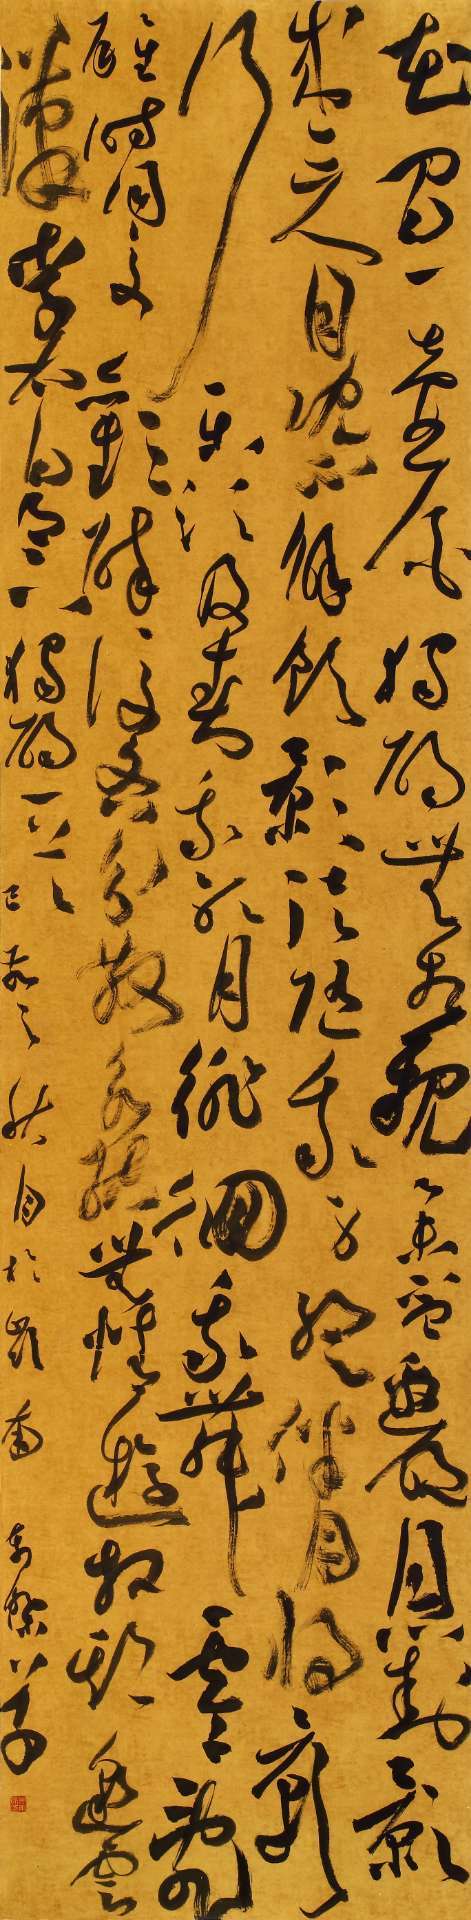 花間一壺酒獨酌無相親舉杯邀明月對影
成三人月既不解飲影徒隨我身暫伴月將影
行樂須及春我歌月徘徊我舞零亂
醒時同交歡醉後各分散永結無情遊相期邈雲
漢李太白月下獨酌一首己亥之秋月於嶺南